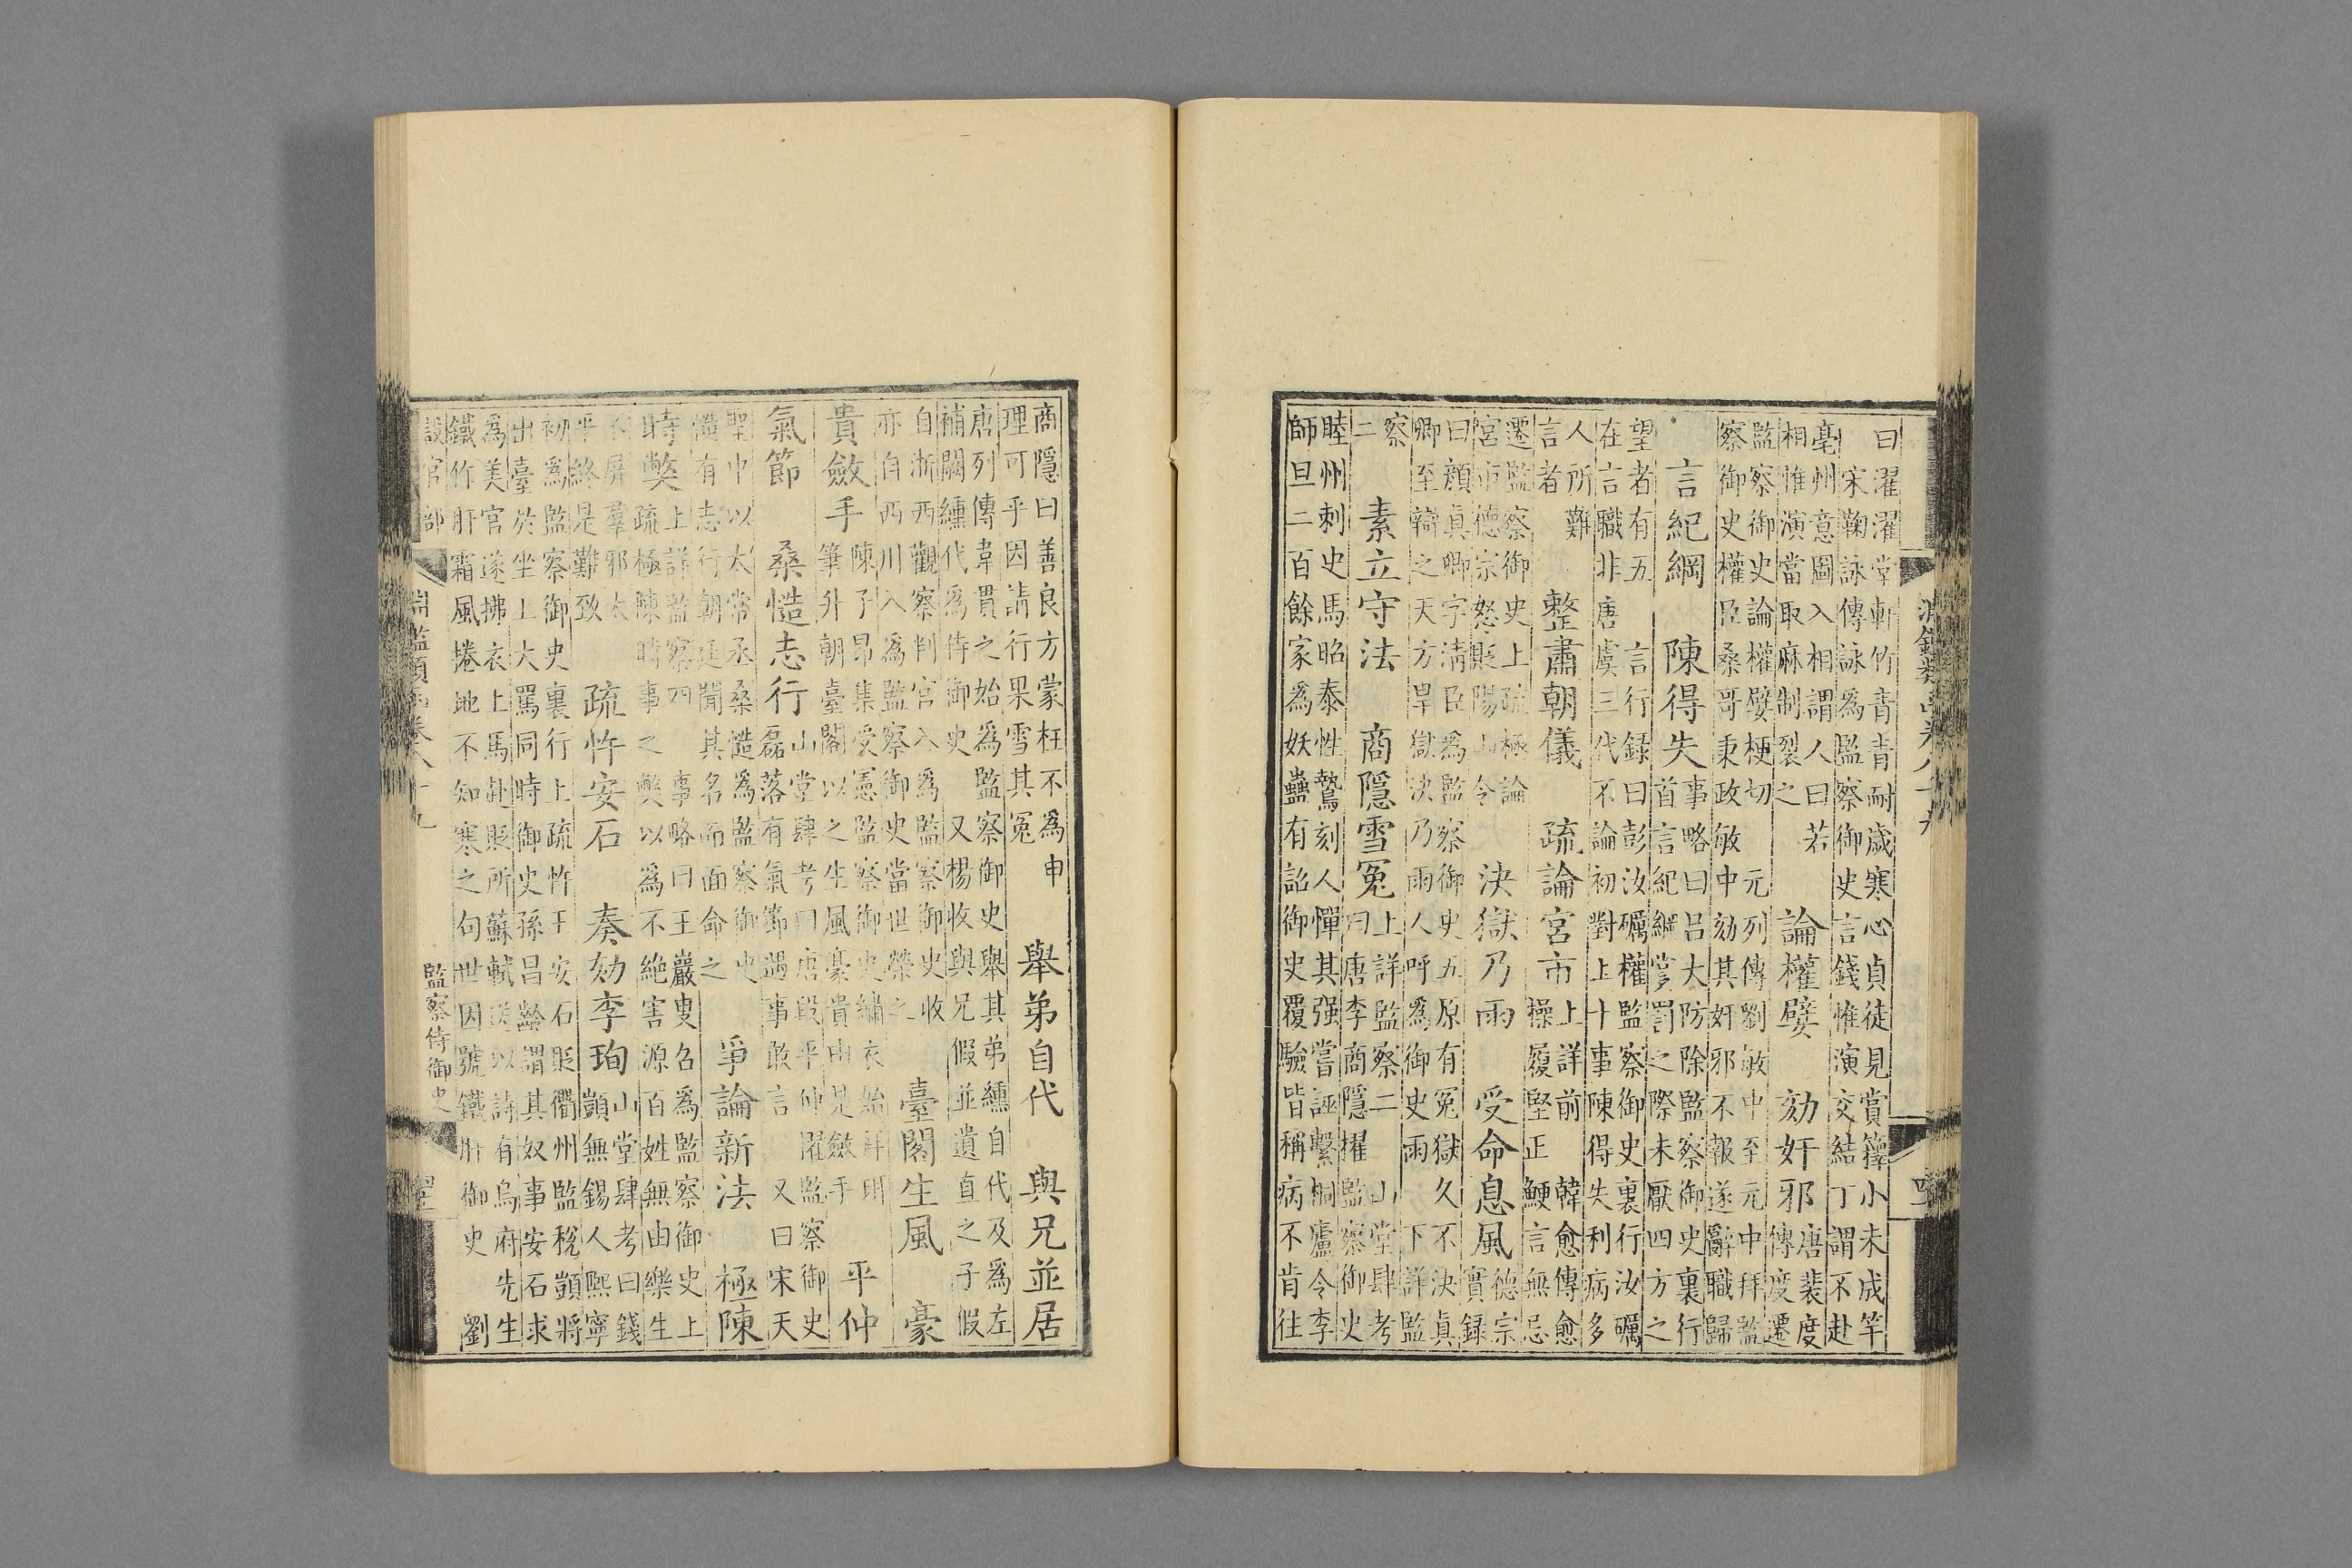 淵鑑類函卷八十九
曰濯濯堂軒竹青青耐歲寒心貞徒見賞籜小未成竿
宋鞠詠傳詠爲監察御史言錢惟演交結丁謂不赴
亳州意圖入相謂人曰若
相惟演當取麻制裂之
論權嬖　劾奸邪
唐裴度
傳度遷
監察御史論權嬖梗切　元列傳劉敏中至元中拜監
察御史權臣桑哥秉政敏中劾其奸邪不報遂辭職歸
言紀綱　陳得失
事略曰吕大防除監察御史裏行
首言紀綱賞罰之際未厭四方之
望者有五　言行録曰彭汝礪權監察御史裏行汝礪
在言職非唐虞三代不論初對上十事陳得失利病多
人所難
言者
整肅朝儀　疏論宮市
上詳前　韓愈傳愈
操履堅正　鯁言無忌
遷監察御史上疏極論
宮市德宗怒貶陽山令
決獄乃雨　受命息風
德宗
實録
曰顔真卿字清臣爲監察御史五原有冤獄久不決真
卿至辯之天方旱獄決乃雨人呼爲御史雨　下詳監
察
二
素立守法　商隱雪冤
上詳監察二　山堂肆考
曰唐李商隱擢監察御史
睦州刺史馬昭泰性鷙刻人憚其强嘗誣繫桐廬令李
師旦二百餘家爲妖蠱有詔御史覆驗皆稱病不肯往
商隱曰善良方蒙枉不爲申
理可乎因請行果雪其冤
舉弟自代　與兄並居
唐列傳韋貫之始爲監察御史舉其弟纁自代及爲左
補闕纁代爲侍御史　又楊收與兄假並遺直之子假
自浙西觀察判官入爲監察御史收
亦自西川入爲監察御史當世榮之
臺閣生風　豪
貴斂手
陳子昂集受憲監察御史繡衣始拜明
筆升朝臺閣以之生風豪貴由是斂手
平仲
氣節　桑慥志行
山堂肆考曰唐段平仲擢監察御史
磊落有氣節遇事敢言　又曰宋天
聖中以太常丞桑慥爲監察御史
慥有志行朝廷聞其名而面命之
爭論新法　極陳
時弊
上詳監察四　事略曰王巖叟召爲監察御史上
疏極陳時事之弊以爲不絶害源百姓無由樂生
不屏羣邪太
平終是難致
疏忤安石　奏劾李珣
山堂肆考曰錢
顗無錫人熙寧
初爲監察御史裏行上疏忤王安石貶衢州監稅顗將
出臺於坐上大罵同時御史孫昌齡謂其奴事安石求
爲美官遂拂衣上馬赴貶所蘇軾送以詩有烏府先生
鐵作肝霜風捲地不知寒之句世因號鐵肝御史　劉
設官部
淵鑑類函卷八十九
監察侍御史